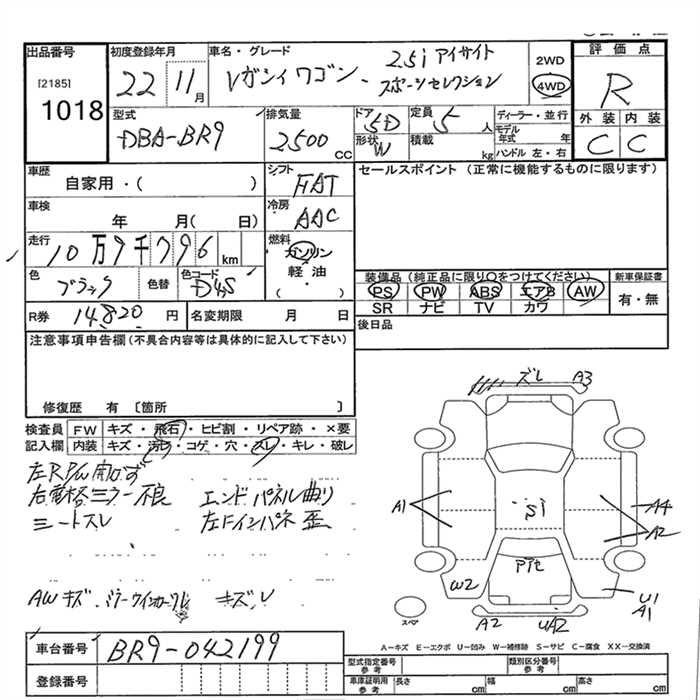 出品番号
[2185]
1018
初度登録年月
22 11月
車名・グレード
レガシィワゴン
2.5i アイサイト
スポーツセレクション
2WD
4WD
評価点
R
外装 内装
C C
型式
DBA-BR9
排気量
2500 cc
ドア
5D
形状
W
定員
5 人
積載
kg
ディーラー・並行
モデル年式 年
ハンドル 左・右
車歴
自家用・( )
シフト
FAT
セールスポイント (正常に機能するものに限ります)
車検
年 月( 日)
冷房
AAC
走行
10万9千796 km
燃料
ガソリン
軽油
( )
色
ブラック
色替
色コード
D4S
装備品(純正品に限り○をつけてください)
PS PW ABS エアB AW
SR ナビ TV カワ
新車保証書
有・無
R券 14820 円
名変期限 月 日
後日品
注意事項申告欄(不具合内容等は具体的に記入して下さい)
修復歴 有 〔箇所 〕
検査員
記入欄
FW キズ・飛石・ヒビ割・リペア跡・×要
内装 キズ・汚レ・コゲ・穴・スレ・キレ・破レ
左R P/w 開口ず
右電格ミラー不良 エンドパネル曲り
シートスレ 左Fインパネ 歪
AWキズ キズレ
ズレ A3
A1
S1
A4
A2
W2
Pit
U1
A1
A2 UA2
スペア
A-キズ E-エクボ U-凹み W-補修跡 S-サビ C-腐食 XX-交換済
車台番号
BR9-042199
登録番号
型式指定番号
参考
類別区分番号
参考
車庫証明用
参考
長さ cm 幅 cm 高さ cm